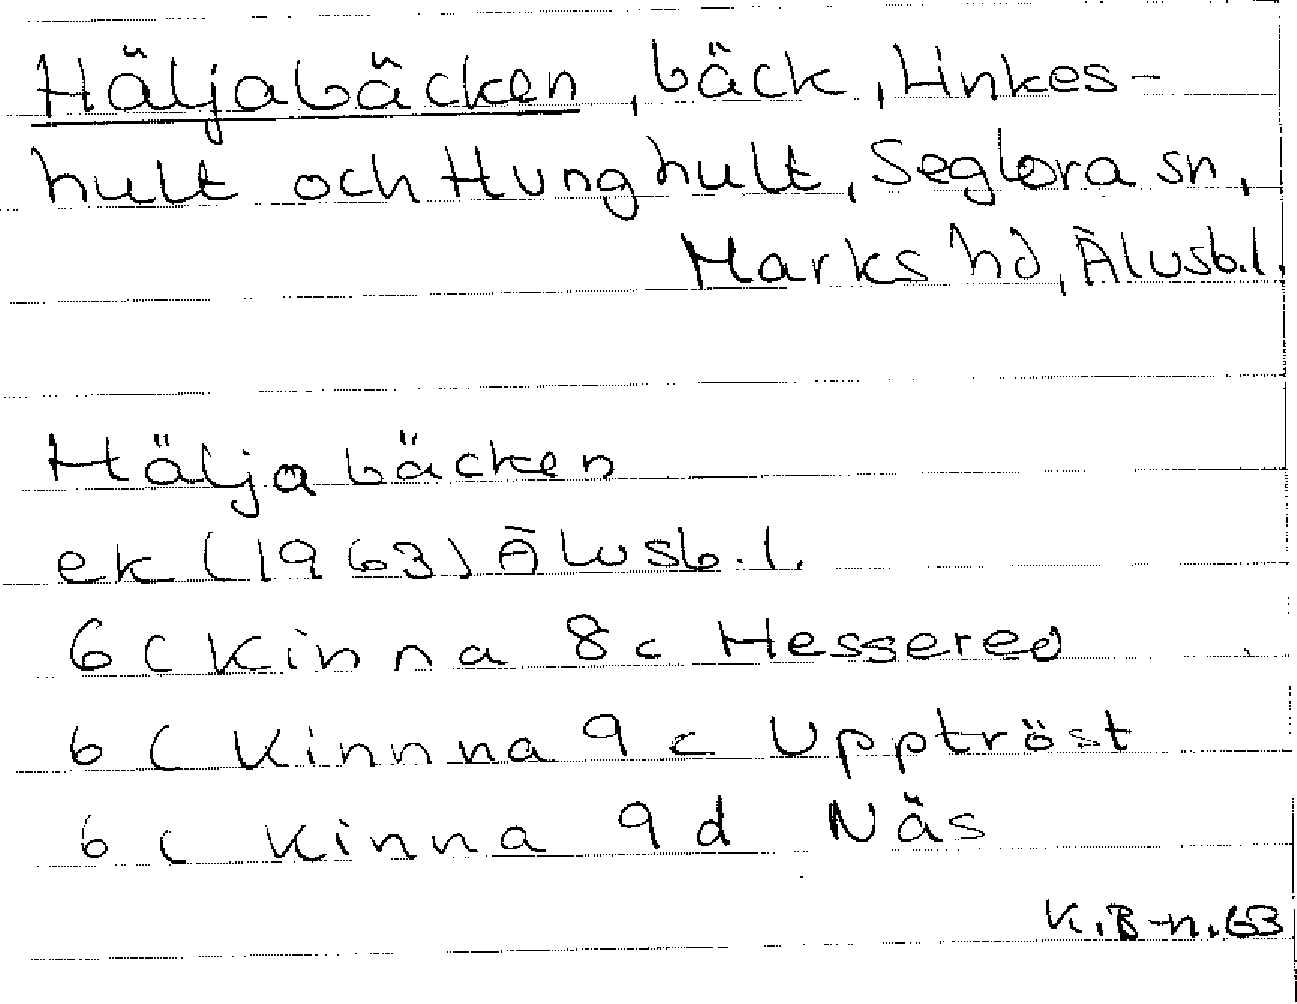 Häljabäcken, bäck, Hinkes-
hult och Hunghult, Seglora sn,
Marks hd, Älvsb.l.
Häljabäcken
ek (1963) Älvsb.l.
6 C Kinna 8c Hessered
6 C Kinnna 9c Upptröst
6 C Kinna 9d Näs
K.B-n.63